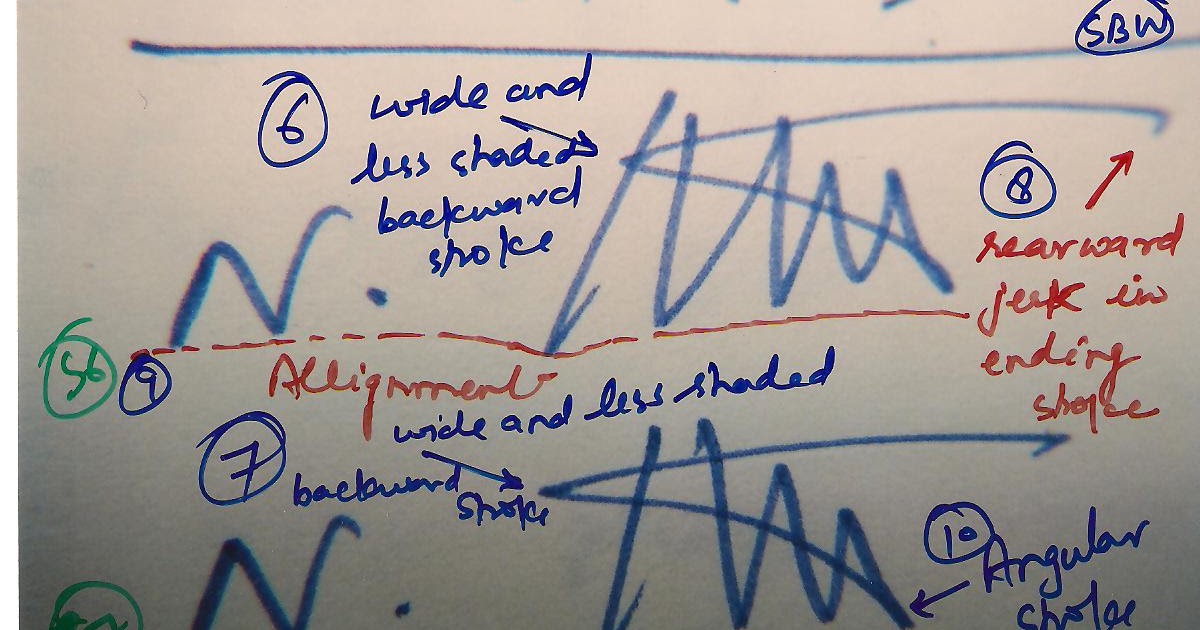 SBW
6
wide and
less shaded
backward
stroke
N.
8
rearward
jerk in
ending
stroke
S6
9
Allignment
7
wide and less shaded
backward
stroke
N.
10
Angular
stroke